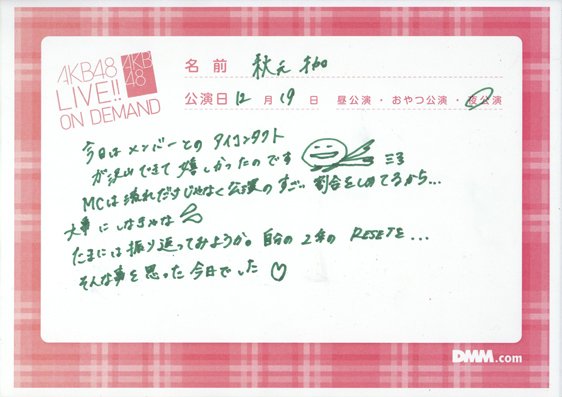 AKB48
LIVE!!
ON DEMAND
AKB
48
名前 秋元才加
公演日 12月19日 昼公演・おやつ公演・夜公演
今日はメンバーとのアイコンタクト
が沢山できて嬉しかったのです
MCは流れだけじゃなく公演のすごい割合をしめてるから…
大事にしなきゃな
たまには振り返ってみようか。自分の2年のRESETを…
そんな事を思った今日でした♡
DMM.com